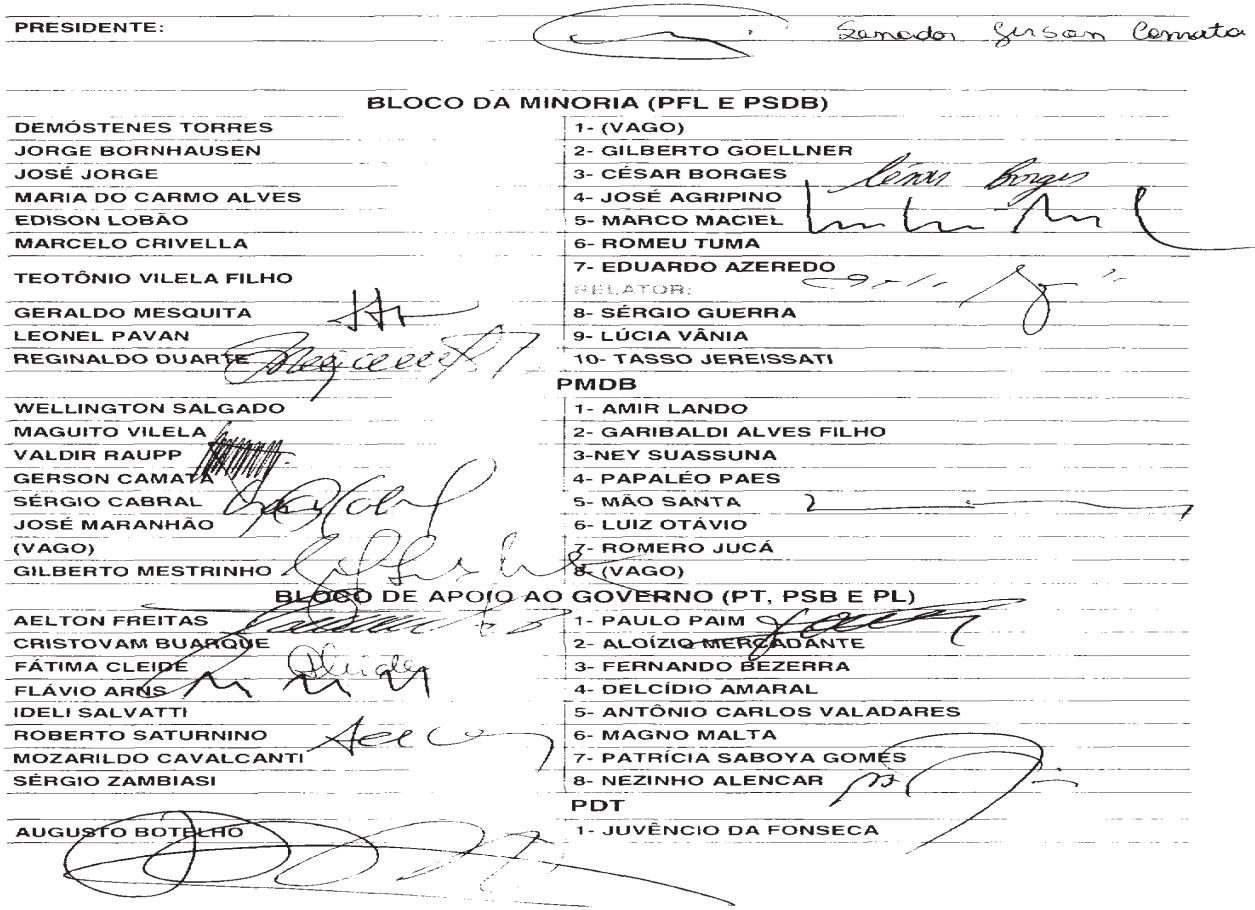 PRESIDENTE: Senador Gerson Camata
BLOCO DA MINORIA (PFL E PSDB)
DEMÓSTENES TORRES 1- (VAGO)
JORGE BORNHAUSEN 2- GILBERTO GOELLNER
JOSÉ JORGE 3- CÉSAR BORGES César Borges
MARIA DO CARMO ALVES 4- JOSÉ AGRIPINO
EDISON LOBÃO 5- MARCO MACIEL
MARCELO CRIVELLA 6- ROMEU TUMA
TEOTÔNIO VILELA FILHO 7- EDUARDO AZEREDO
RELATOR:
GERALDO MESQUITA 8- SÉRGIO GUERRA
LEONEL PAVAN 9- LÚCIA VÂNIA
REGINALDO DUARTE 10- TASSO JEREISSATI
PMDB
WELLINGTON SALGADO 1- AMIR LANDO
MAGUITO VILELA 2- GARIBALDI ALVES FILHO
VALDIR RAUPP 3-NEY SUASSUNA
GERSON CAMATA 4- PAPALÉO PAES
SÉRGIO CABRAL 5- MÃO SANTA
JOSÉ MARANHÃO 6- LUIZ OTÁVIO
(VAGO) 7- ROMERO JUCÁ
GILBERTO MESTRINHO 8- (VAGO)
BLOCO DE APOIO AO GOVERNO (PT, PSB E PL)
AELTON FREITAS 1- PAULO PAIM
CRISTOVAM BUARQUE 2- ALOÍZIO MERCADANTE
FÁTIMA CLEIDE 3- FERNANDO BEZERRA
FLÁVIO ARNS 4- DELCÍDIO AMARAL
IDELI SALVATTI 5- ANTÔNIO CARLOS VALADARES
ROBERTO SATURNINO 6- MAGNO MALTA
MOZARILDO CAVALCANTI 7- PATRÍCIA SABOYA GOMES
SÉRGIO ZAMBIASI 8- NEZINHO ALENCAR
PDT
AUGUSTO BOTELHO 1- JUVÊNCIO DA FONSECA